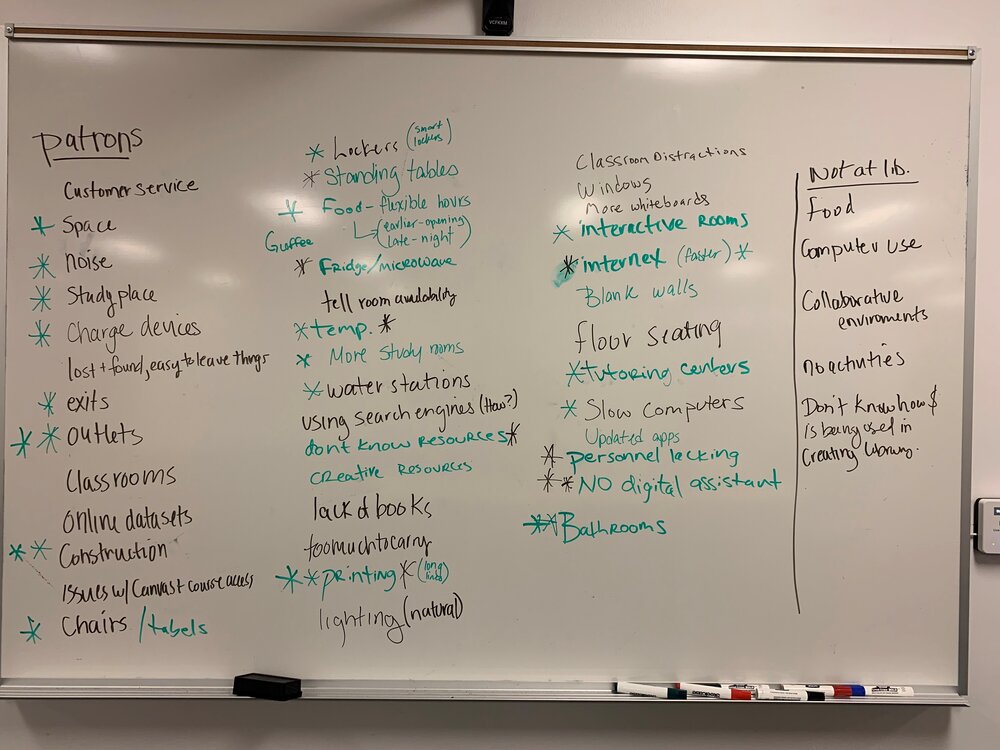 VCFKXM
patrons
Customer service
* Space
* noise
* Study place
* Charge devices
lost + found, easy to leave things
* exits
* * outlets
Classrooms
Online datasets
* * Construction
Issues w/ Canvast course access
* Chairs / tabels
* Lockers (smart lockers)
* Standing tables
* Food - flexible hours
(earlier-opening
late-night)
Guffee
* Fridge/microwave
tell room availability
* temp. *
* More Study rooms
* water stations
using search engines (How?)
don't know Resources *
Creative Resources
lack of books
too much to carry
* * printing * (long lines)
lighting (natural)
Classroom Distractions
Windows
More whiteboards
* interactive Rooms
* internex (faster) *
Blank walls
floor seating
* Tutoring centers
* Slow Computers
Updated apps
* personnel lacking
* * NO digital assistant
** Bathrooms
Not at lib.
Food
Computer use
Collaborative
enviroments
no activities
Don't Know how $
is being used in
Creating library.